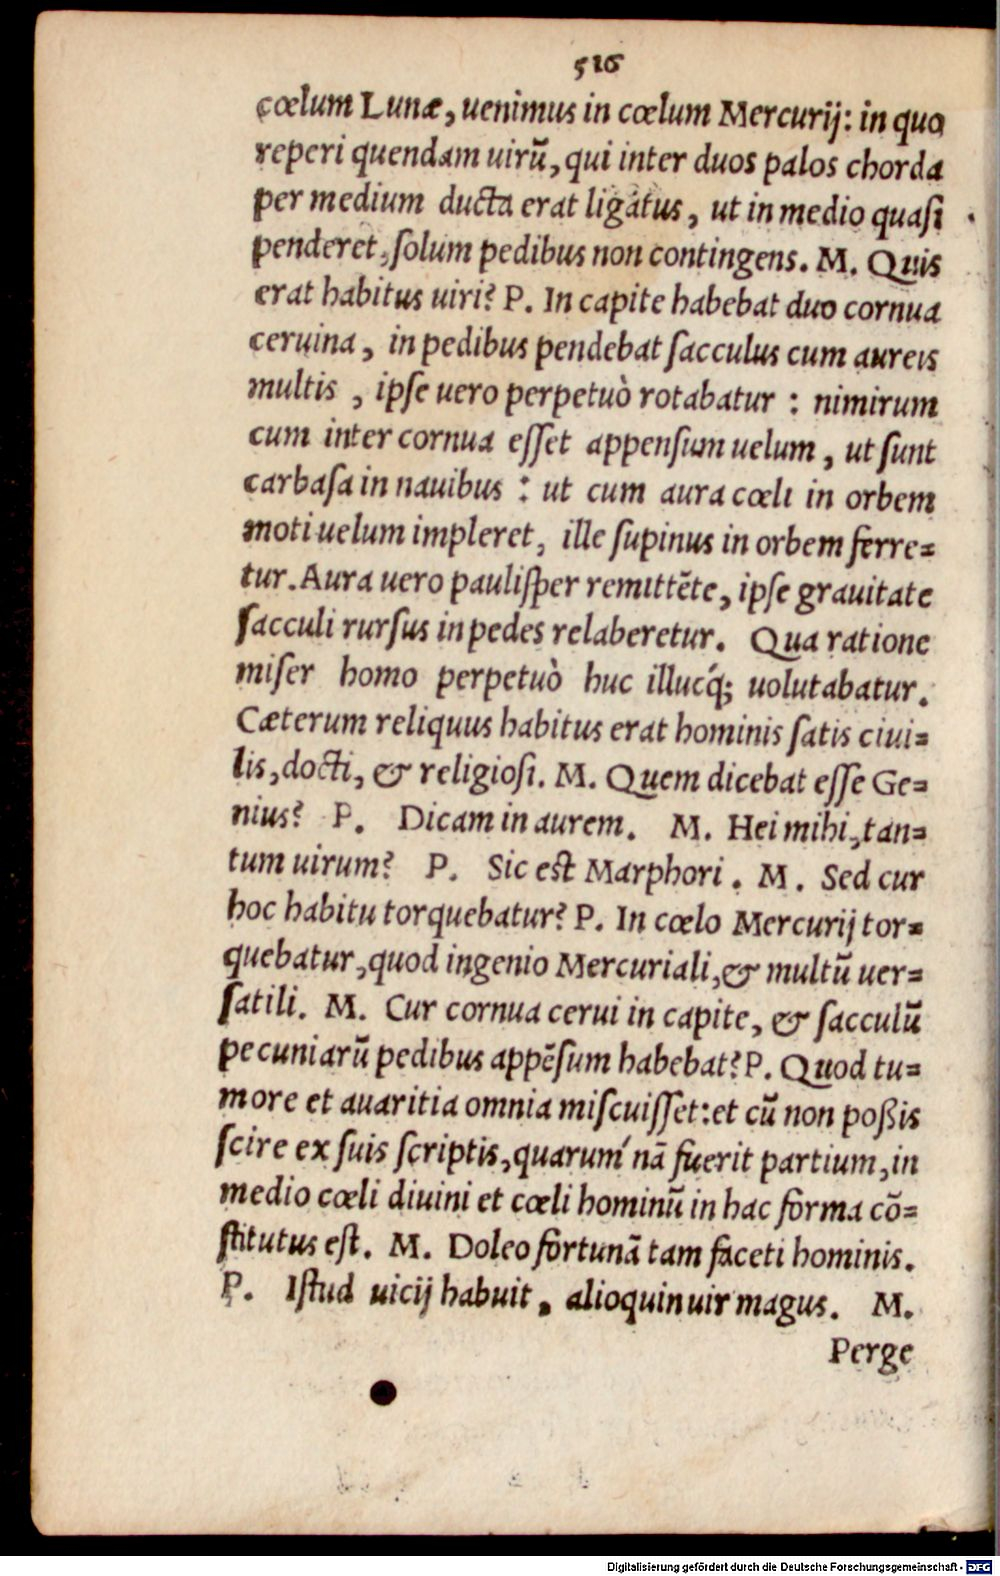 516
cœlum Lunæ, uenimus in cœlum Mercurij: in quo
reperi quendam uirũ, qui inter duos palos chorda
per medium ducta erat ligatus, ut in medio quasi
penderet, solum pedibus non contingens. M. Quis
erat habitus uiri? P. In capite habebat duo cornua
ceruina, in pedibus pendebat sacculus cum aureis
multis, ipse uero perpetuò rotabatur: nimirum
cum inter cornua esset appensum uelum, ut sunt
carbasa in nauibus: ut cum aura cœli in orbem
moti uelum impleret, ille supinus in orbem ferre=
tur. Aura uero paulisper remittẽte, ipse grauitate
sacculi rursus in pedes relaberetur. Qua ratione
miser homo perpetuò huc illucq́; uolutabatur.
Cæterum reliquus habitus erat hominis satis ciui=
lis, docti, & religiosi. M. Quem dicebat esse Ge=
nius? P. Dicam in aurem. M. Hei mihi, tan=
tum uirum? P. Sic est Marphori. M. Sed cur
hoc habitu torquebatur? P. In cœlo Mercurij tor=
quebatur, quod ingenio Mercuriali, & multũ uer=
satili. M. Cur cornua cerui in capite, & sacculũ
pecuniarũ pedibus appẽsum habebat? P. Quod tu=
more et auaritia omnia miscuisset: et cũ non poßis
scire ex suis scriptis, quaruḿ nã fuerit partium, in
medio cœli diuini et cœli hominũ in hac forma cõ=
stitutus est. M. Doleo fortunã tam faceti hominis.
P. Istud uicij habuit, alioquin uir magus. M.
Perge
Digitalisierung gefördert durch die Deutsche Forschungsgemeinschaft - DFG